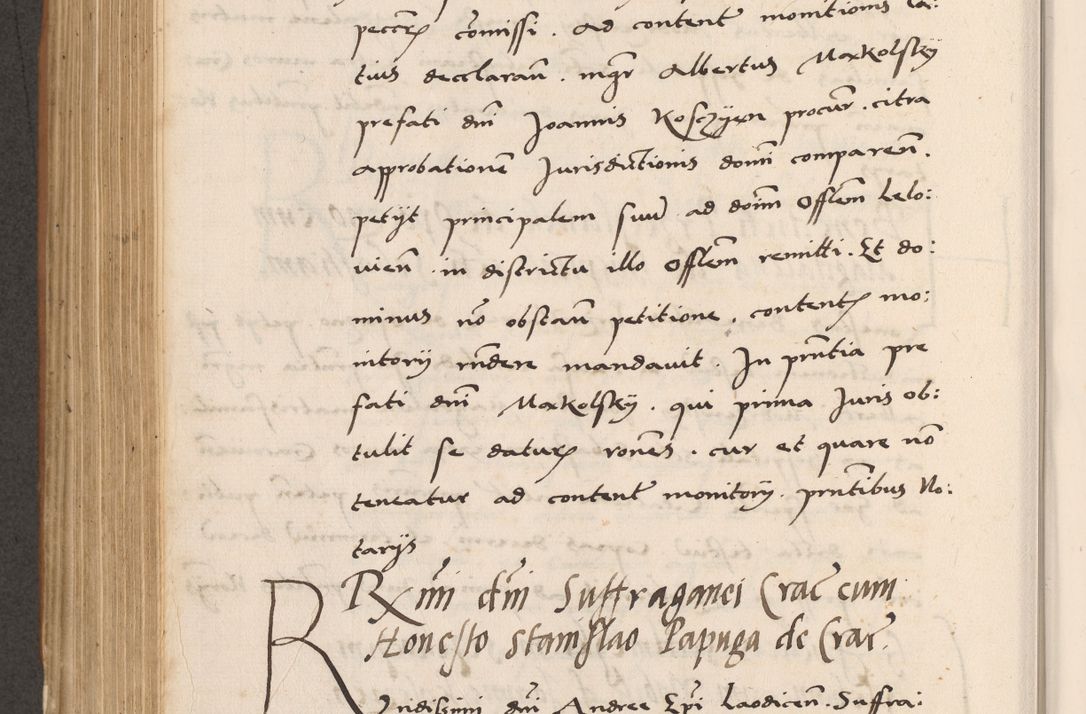 peccr̃ cõmissi. Ad content̃ monitionis la:
tius decclaran̄. mgr̄ Albertus Maxkolsky
prefati dnī Joannis Kosczyen procur̄. citra
approbationē Jurisdictionis domī comparen̄.
petyt principalem suū ad doīm Offlēm Lelo:
uien̄ in districtu illo Offlēm remitti. Et do:
minus nō obstan̄ petitione, content̃ mo:
nitorij rn̄dere mandavit. In prn̄tia pre
fati dnī Maxkolsky. qui prima Juris ob:
tulit se datur̃ rones̄. cur et quare nō
teneatur ad content̃ monitorij. prn̄tibus No:
tarijs
Rx̄mi dn̄i Suffraganei Crac̄ cum
Honesto Stanislao Papuga de Crac̄.
R ndissimi dnī Andree Epī Laodicen̄. Suffra: